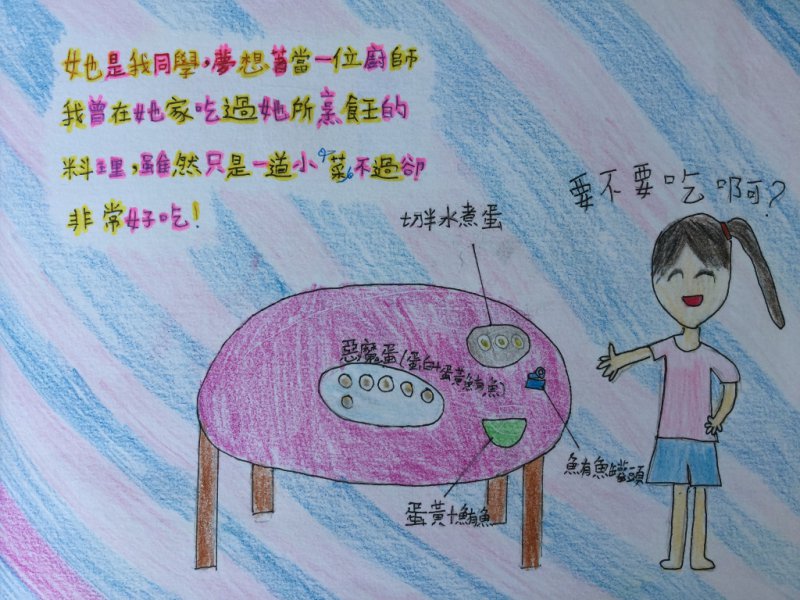 她是我同學,夢想當一位廚師
我曾在她家吃過她所烹飪的
料理,雖然只是一道小菜不過卻
非常好吃!
要不要吃啊?
切半水煮蛋
惡魔蛋(蛋白+蛋黃鮪魚)
鮪魚罐頭
蛋黃+鮪魚